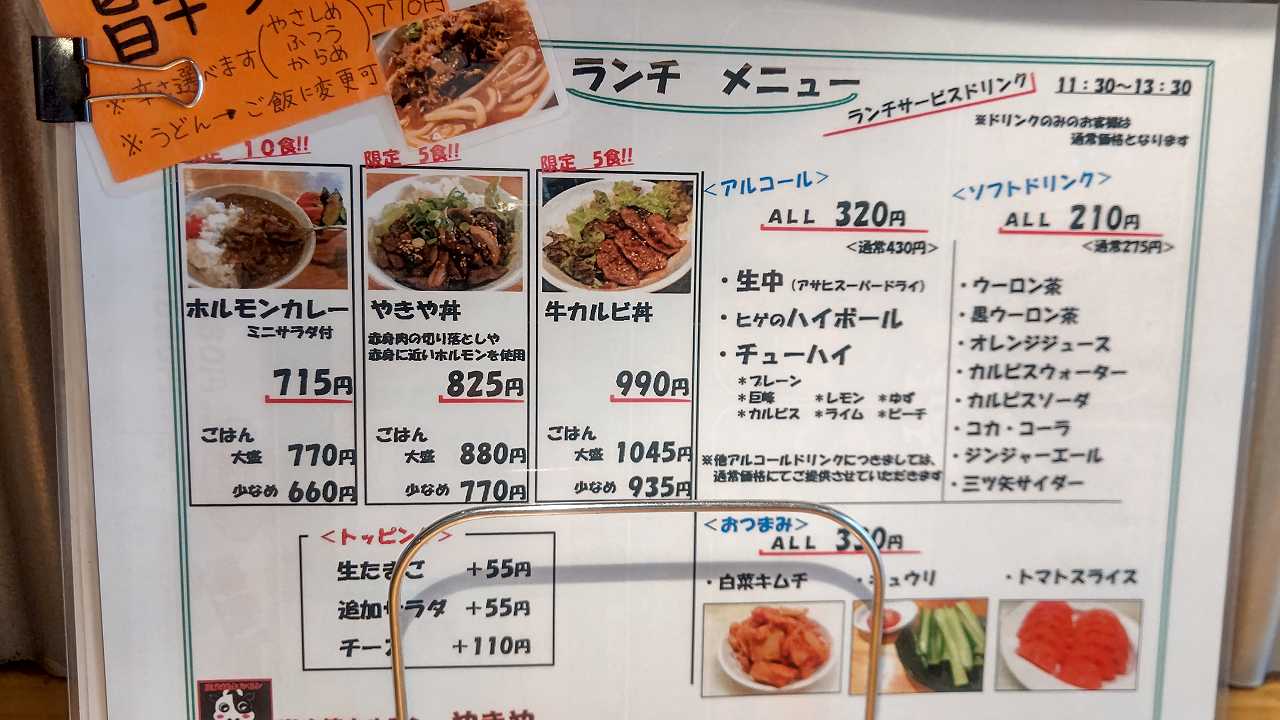 770円
※辛さ選べます(やさしめ
ふつう
からめ)
※うどん→ご飯に変更可
ランチ メニュー
ランチサービスドリンク
11:30~13:30
※ドリンクのみのお客様は
通常価格となります
10食!!
限定 5食!!
限定 5食!!
ホルモンカレー
ミニサラダ付
715円
ごはん
大盛 770円
少なめ 660円
やきや丼
赤身肉の切り落としや
赤身に近いホルモンを使用
825円
ごはん
大盛 880円
少なめ 770円
牛カルビ丼
990円
ごはん
大盛 1045円
少なめ 935円
<アルコール>
ALL 320円
<通常430円>
・生中(アサヒスーパードライ)
・ヒゲのハイボール
・チューハイ
*プレーン
*巨峰 *レモン *ゆず
*カルピス *ライム *ピーチ
※他アルコールドリンクにつきましては、
通常価格にてご提供させていただきます
<ソフトドリンク>
ALL 210円
<通常275円>
・ウーロン茶
・黒ウーロン茶
・オレンジジュース
・カルピスウォーター
・カルピスソーダ
・コカ・コーラ
・ジンジャーエール
・三ツ矢サイダー
<トッピング>
生たまご +55円
追加サラダ +55円
チーズ +110円
<おつまみ>
ALL
・白菜キムチ
・キュウリ
・トマトスライス